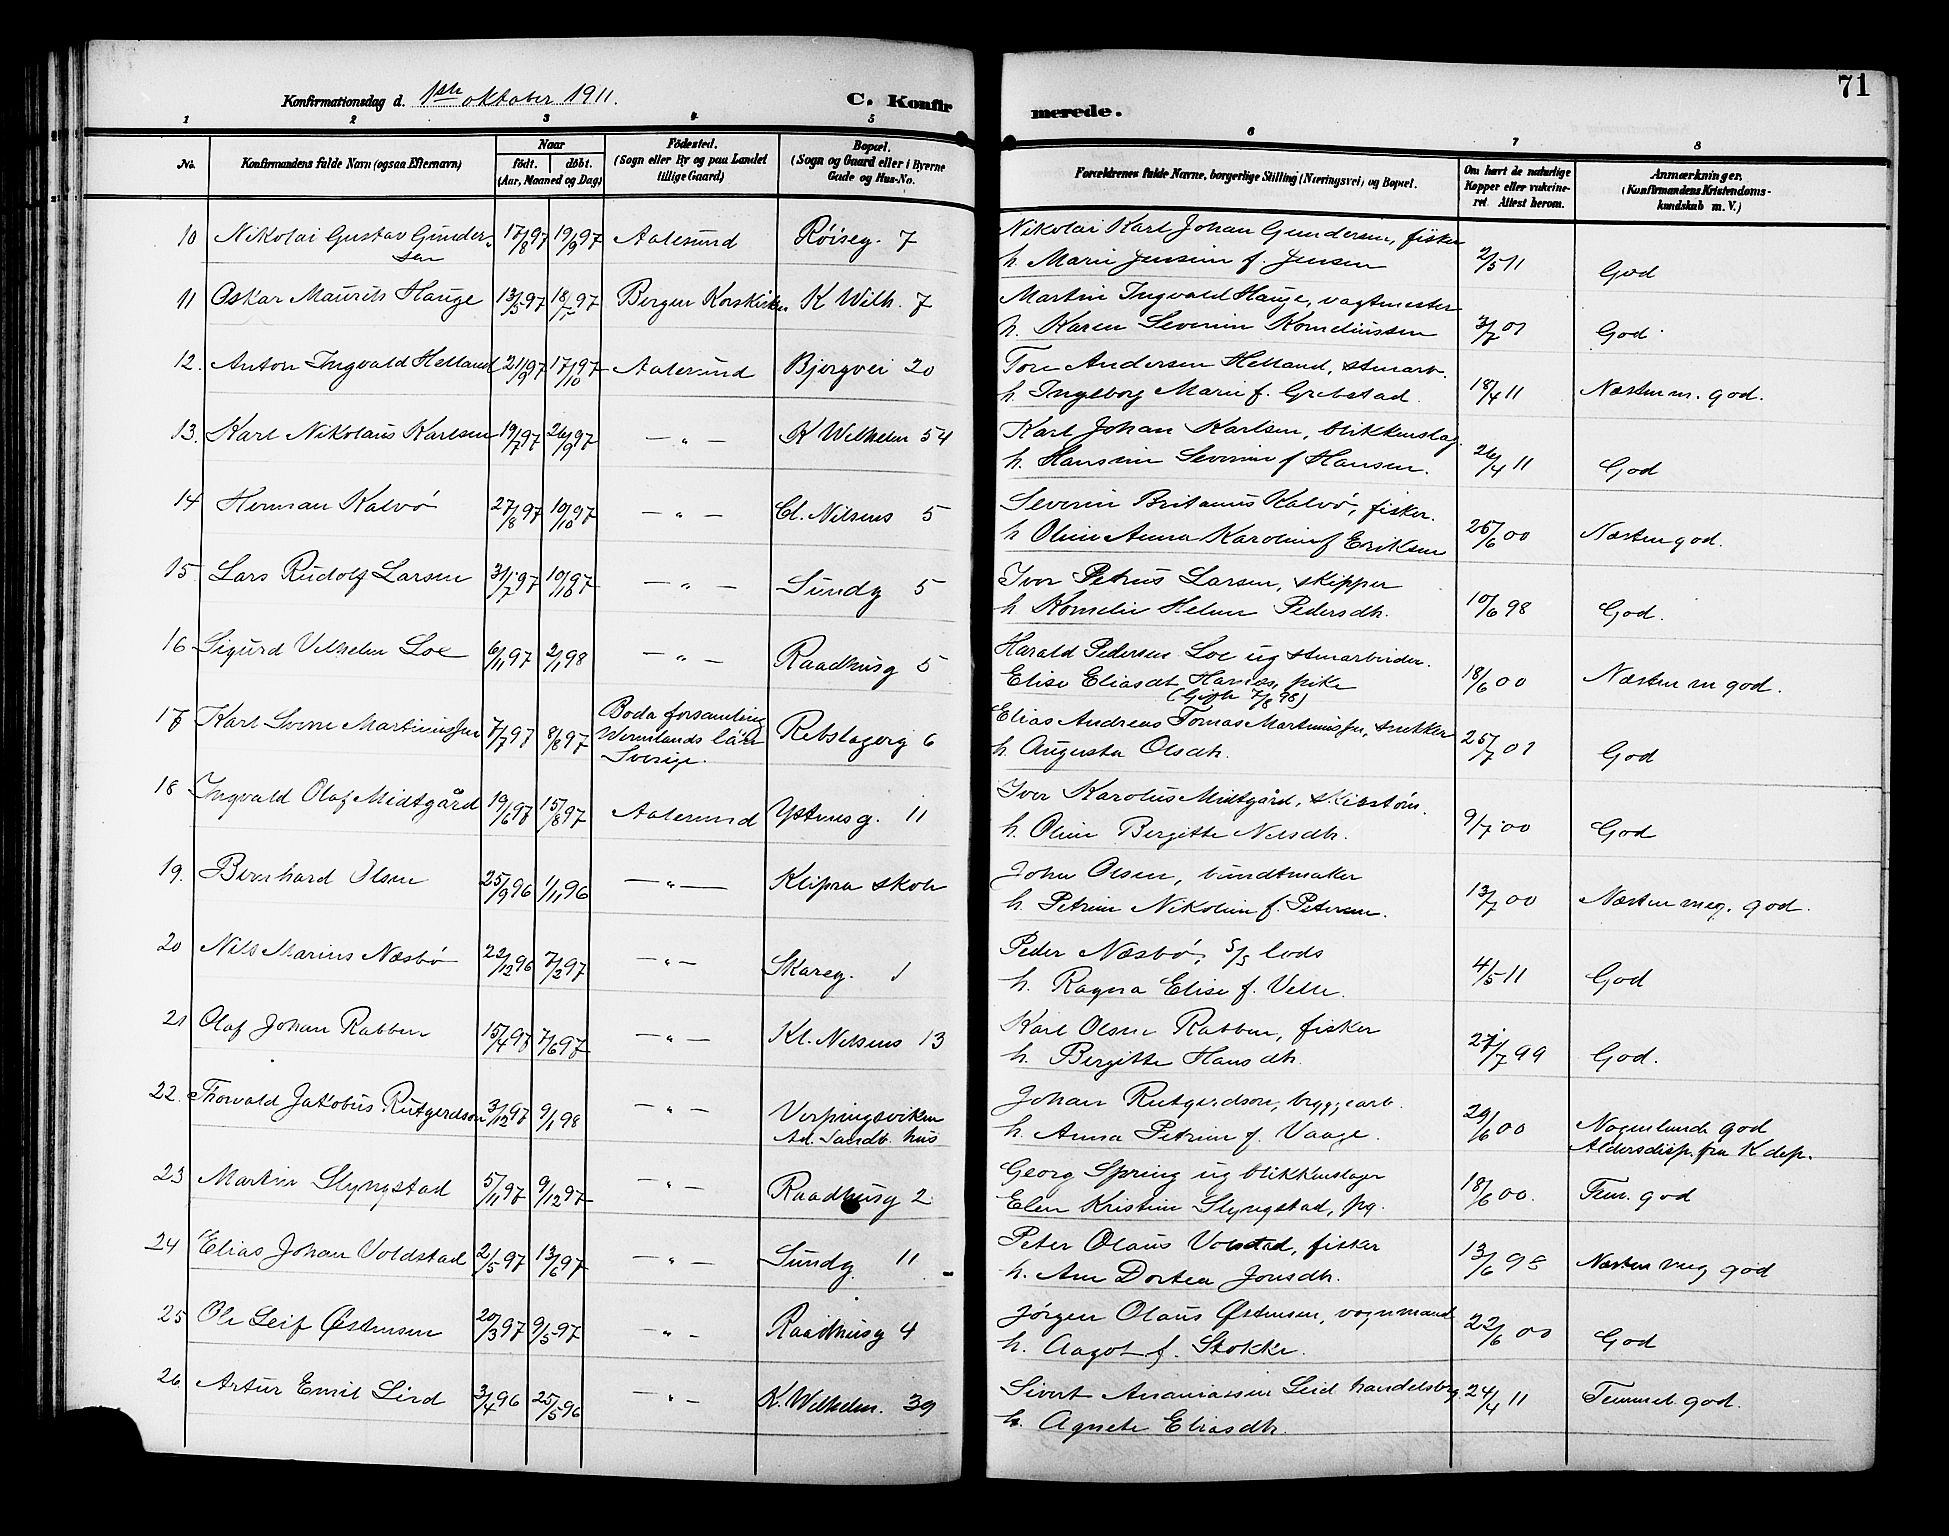 71
Konfirmationsdag d. 1ste oktober 1911.
C. Konfirmerede.
1 2 3 4 5 6 7 8
No. Konfirmandens fulde Navn (ogsaa Efternavn) Naar født. døbt. (Aar, Maaned og Dag) Fødested. (Sogn eller By og paa Landet tillige Gaard) Bopæl. (Sogn og Gaard eller i Byerne Gade og Hus-No. Forældrenes fulde Navne, borgerlige Stilling (Næringsvei) og Bopæl. Om havt de naturlige Kopper eller vakcineret. Attest herom. Anmærkninger. (Konfirmandens Kristendomskundskab m. V.)
10 Nikolai Gustav Gundersen 17/8 97 19/9 97 Aalesund Røiseg. 7 Nikolai Karl Johan Gundersen, fisker
h. Marie Jensine f. Jensen 2/5 11 God
11 Oskar Maurits Hauge 13/5 97 18/7 97 Bergen Korskirken K Wilh. 7 Martin Ingvald Hauge, vagtmester
h. Karen Severine Korneliussen 3/7 01 God
12. Anton Ingvald Helland 21/9 97 17/10 97 Aalesund Bjergvei 20 Tore Andersen Helland, stenarb.
h. Ingeborg Marie f. Grebstad. 18/4 11 Næsten m. god.
13. Karl Nikolaus Karlsen 19/7 97 26/9 97 — " — K Wilhelm 54 Karl Johan Karlsen, blikkenslag.
h. Hansine Severine f Hansen. 26/4 11 God
14 Herman Kalvø 27/8 97 10/10 97 — " — Cl. Nilsens 5 Severin Britanus Kalvø, fisker.
h Oline Anna Karoline f Eriksen 25/6 00 Næsten god.
15 Lars Rudolf Larsen 31/7 97 10/10 97 — " — Sundg 5 Iver Petrus Larsen, skipper
h Kornelie Helene Pedersdtr. 10/6 98 God.
16 Sigurd Vilhelm Loe 6/11 97 2/1 98 — " — Raadhusg 5 Harald Pedersen Loe ug stenarbeider.
Elise Eliasdt Hamnes, pike
(Gifte 7/8 98) 18/6 00 Næsten m god.
17 Karl Sverre Martinussen 7/7 97 8/8 97 Boda forsamling
Wermlands län
Sverige. Rebslagerg 6 Elias Andreas Tomas Martinussen, snekker
h Augusta Olsdtr. 25/7 01 God
18 Ingvald Olaf Midtgård 19/6 97 15/8 97 Aalesund Ystenesg. 11 Iver Karolus Midtgård, skibstøm.
h. Oline Bergitte Nilsdtr. 9/7 00 God
19. Bernhard Olsen 25/9 96 1/11 96 — " — Klipra skole John Olsen, bundtmaker
h. Petrine Nikoline f. Petersen. 13/7 00 Næsten meg. god.
20 Nils Marius Næsbø 22/12 96 7/2 97 — " — Skareg. 1 Peder Næsbø, S/S lods
h. Ragna Elise f. Velle. 4/5 11 God
21 Olaf Johan Rabben 15/4 97 7/6 97 — " — Kl. Nilsens 13 Karl Olsen Rabben, fisker
h. Bergitte Hansdtr. 27/7 99 God.
22. Thorvald Jakobus Rutgerdson 3/12 97 9/1 98 — " — Verpingsviken
Ad. Sandb. hus Johan Rutgerdson, bryggearb.
h. Anna Petrine f. Vaage. 29/6 00 Nogenlunde god
Aldersdisp. fra K. dep.
23 Martin Slyngstad 5/11 97 9/12 97 — " — Raadhusg 2 Georg Spring ug blikkenslager
Elen Kristine Slyngstad, pg. 18/6 00. Tem. god
24 Elias Johan Voldstad 2/5 97 13/6 97 — " — Sundg. 11 Peter Olaus Volstad, fisker
h. Ane Dortea Jonsdtr. 13/6 98 Næsten meg god
25 Ole Leif Østensen 20/3 97 9/5 97 — " — Raadhusg 4 Jørgen Olaus Østensen, vognmand
h. Aagot f. Stokke. 22/6 00 God
26 Artur Emil Lied 3/4 96 25/5 96 — " — K. Wilhelm. 39 Sivert Ananiassen Leid handelsbg.
h. Agnete Eliasdtr. 24/4 11 Temmel. god.